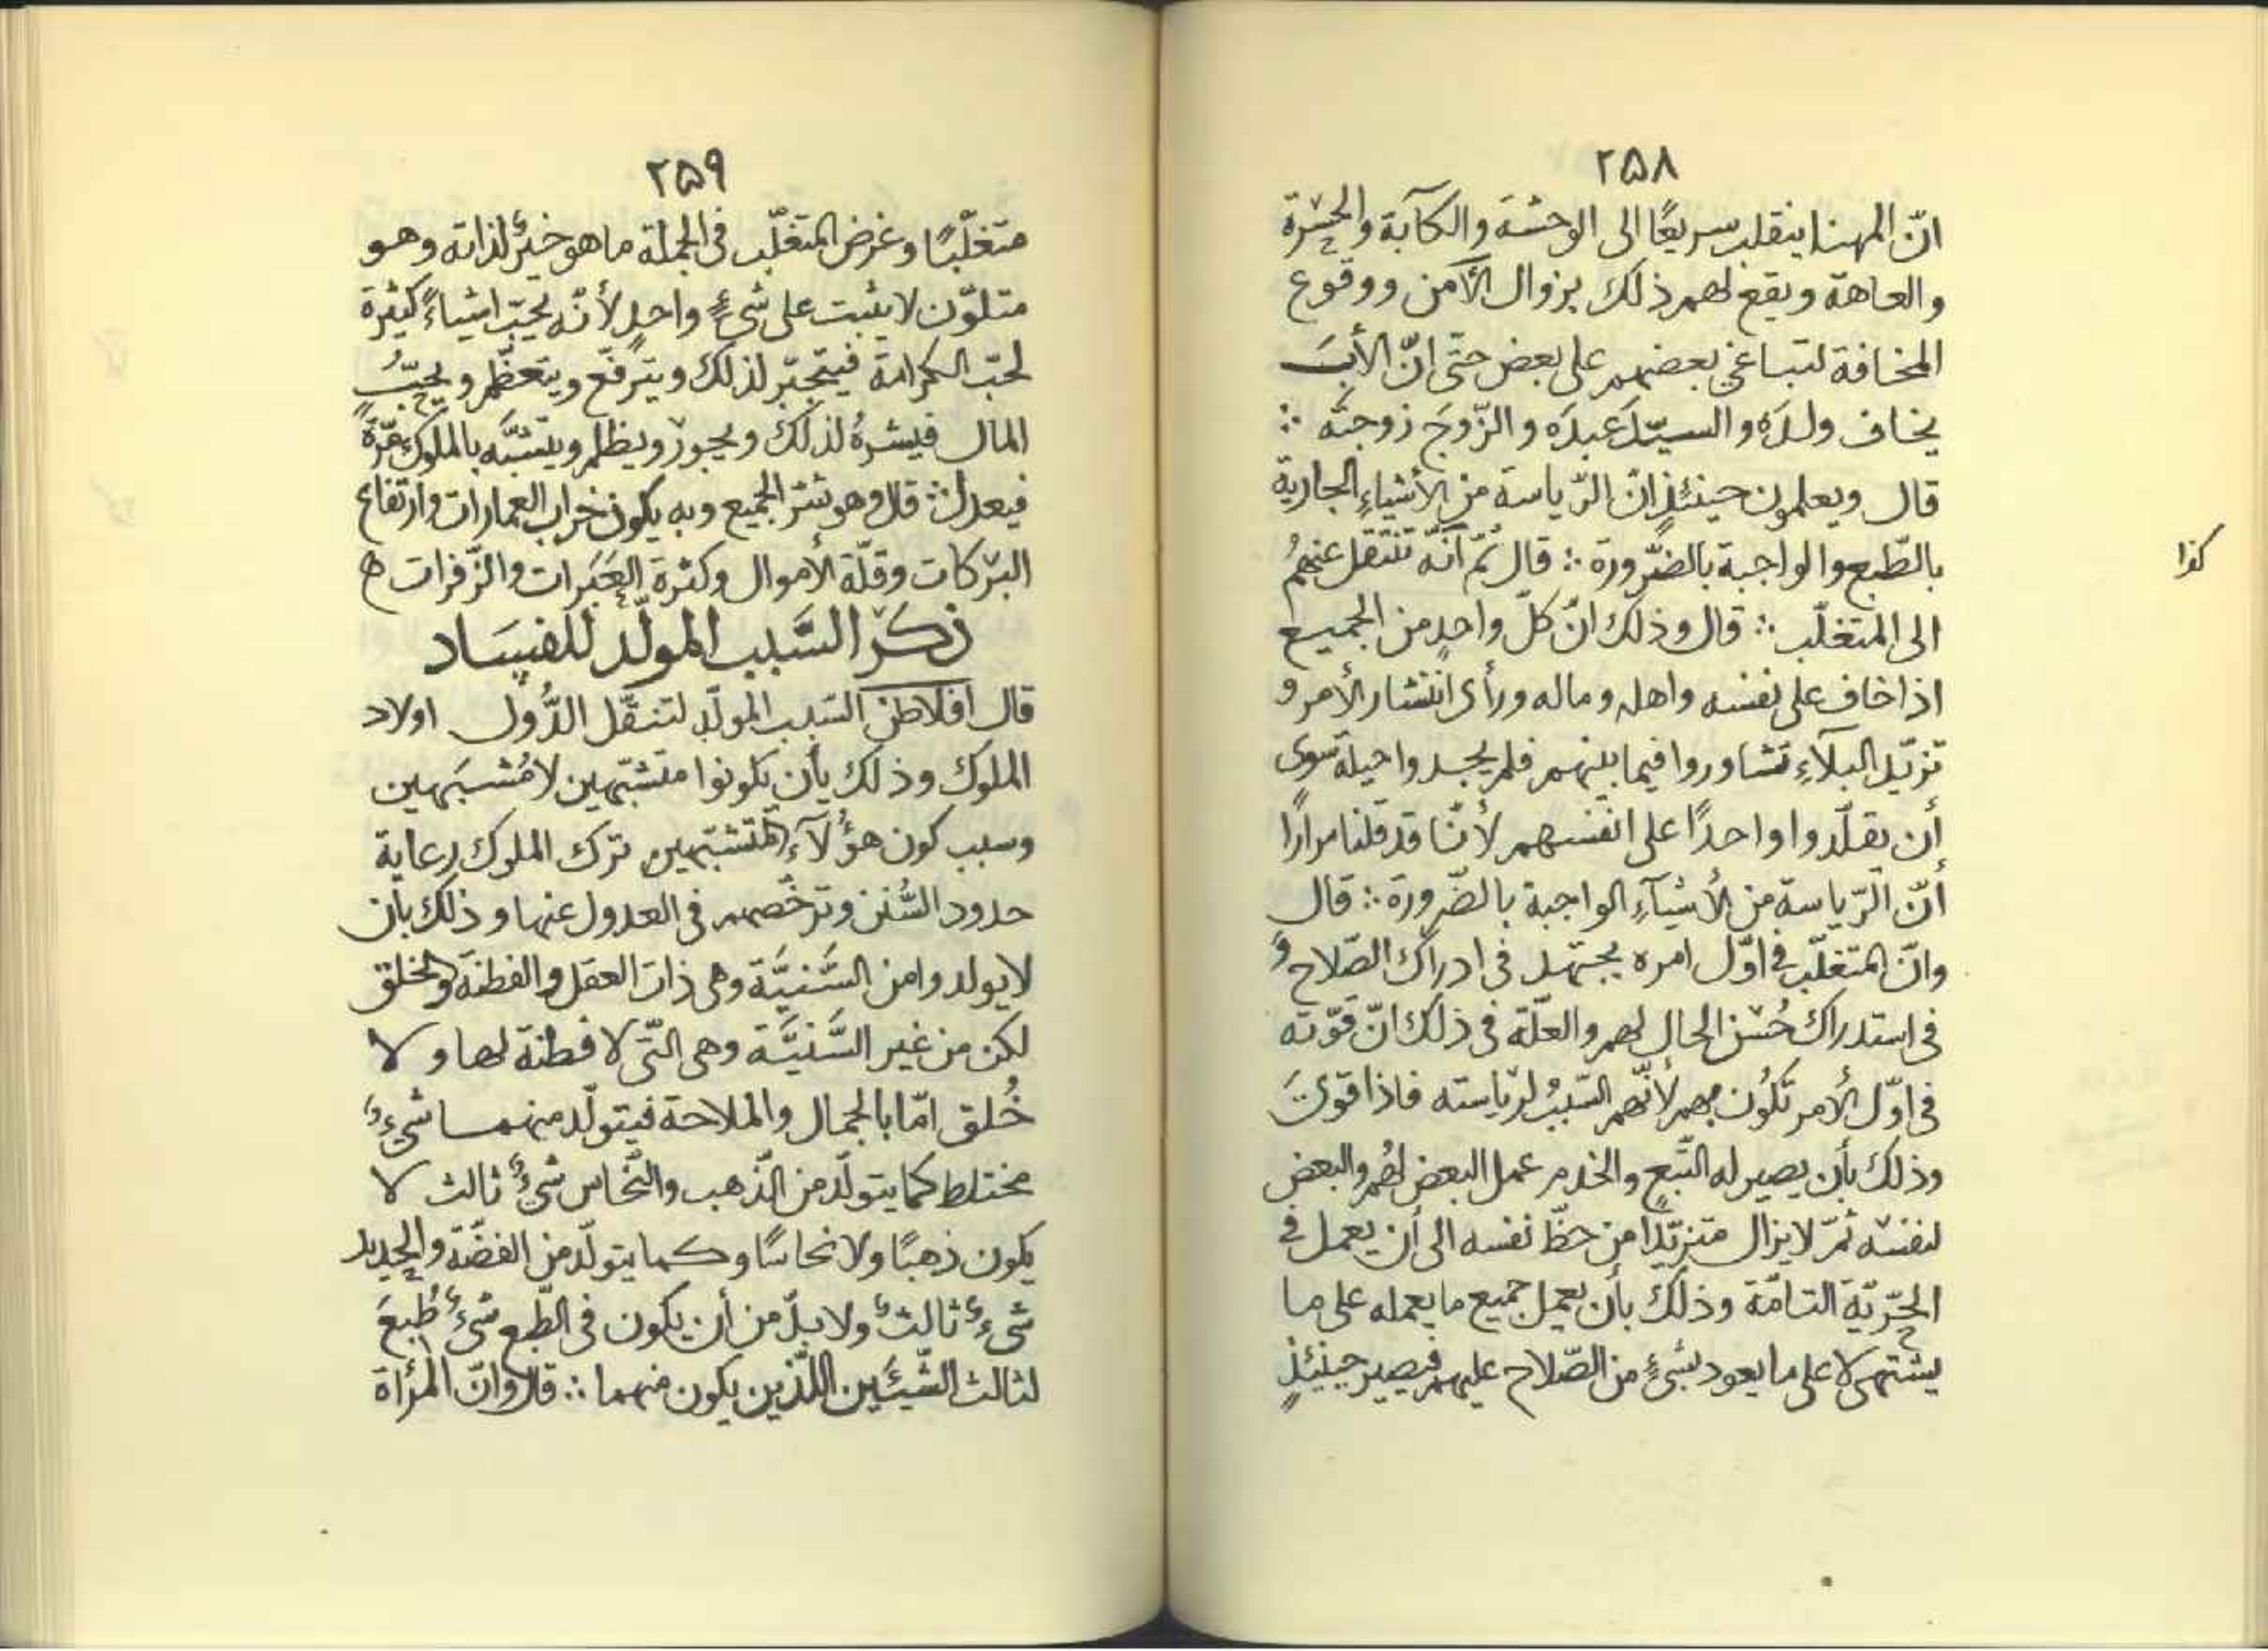 ٢٥٨
انّ المهنا ينقلب سريعًا الى الوحشة والكآبة والحسْرة
والعاهة ويقع لهم ذلك بزوال الأمن ووقوع
المخافة لتباغى بعضهم على بعض حتّى انّ الأبَ
يخاف ولدَه والسيّدَ عبدَه والزّوجَ زوجتَه ∴
قال ويعلمون حينئذٍ انّ الرّياسة من الأشياءِ الجارية
بالطّبع والواجبة بالضّرورة ∴ قال ثمّ انّه تنتقل عنهمُ
كذا
الى المتغلّب ∴ قال وذلك انّ كلّ واحدٍ من الجميع
اذا خاف على نفسه واهله وماله ورأى انتشار الأمر و
تزيّد البلآءِ تشاوروا فيما بينهم فلم يجدوا حيلة سوى
أن يقلّدوا واحدًا على انفسهم لأنّا قد قلنا مرارًا
أنّ الرّياسة من الأشيآءِ الواجبة بالضّرورة ∴ قال
وانّ المتغلّب فى اوّل امره يجتهد فى ادراك الصّلاح و
فى استدراك حُسْن الحال لهم والعلّة فى ذلك انّ قوّته
فى اوّل الأمر تكُون بهم لأنّهم السّببُ لرّياسته فاذا قوىَ
وذلك بأن يصير له التّبع والخدم عمل البعض لهُم والبعض
لنفسْه ثمّ لا يزال متزيّدًا من حظّ نفسه الى أن يعمل فى
الحرّيّة التامّة وذلك بأن يعمل جميع ما يعمله على ما
يشتهى لا على ما يعود بشىءٍ من الصّلاح عليهم فيصير حينئذٍ
٢٥٩
متغلّبًا وغرض المتغلّب فى الجملة ما هو خيرٌ لذاته وهو
متلوّن لا يثبت على شىءٍ واحدٍ لأنّه يحبّ اشياءً كثيرة
لحبّ الكرامة فيتجبّر لذلك ويترفّع ويتعظّم ويحبّ
المال فيشرهُ لذلك ويجورْ ويظلم ويتشبّه بالملوك مرّةً
فيعدل ∴ قال وهو شرّ الجميع وبه يكون خراب العمارات وارتفاع
البرْكات وقلّة الأموال وكثرة العَبَرات والزّفرات ه
ذكْر السَّبب المولّد للفسَاد
قال افلاطن السّبب المولّد لتنقّل الدُّول اولاد
الملوك وذلك بأن يكونوا متشبّهين لا مُشبَهين
وسبب كون هؤُلآءِ المتشبّهين ترك الملوك رعاية
حدود السُّنن وترخّصهم فى العدول عنها وذلك بأن
لا يولدوا من السَّنيَّة وهى ذات العقل والفطنة والخلق
لكن من غير السَّنيَّة وهى التّى لا فطنة لها ولا
خُلق امّا بالجمال والملاحة فيتولّد منهما شىءٌ
مختلط كما يتولّد من الذّهب والنّحاس شىءٌ ثالث لا
يكون ذهبًا ولا نحاسًا وكما يتولّد من الفضّة والحديد
شىءٌ ثالثٌ ولا بدّ من أن يكون فى الطّبع شىءٌ طُبعَ
لثالث الشّيئَين اللّذين يكون منهما ∴ قال وانّ المرأة